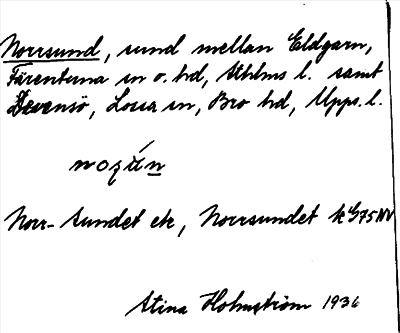 Norrsund, sund mellan Eldgarn,
Färentuna sn o. hd, Sthlms l. samt
Devensö, Lossa sn, Bro hd, Upps. l.
Norr-Sundet ek, Norrsundet k
Stina Holmström 1936